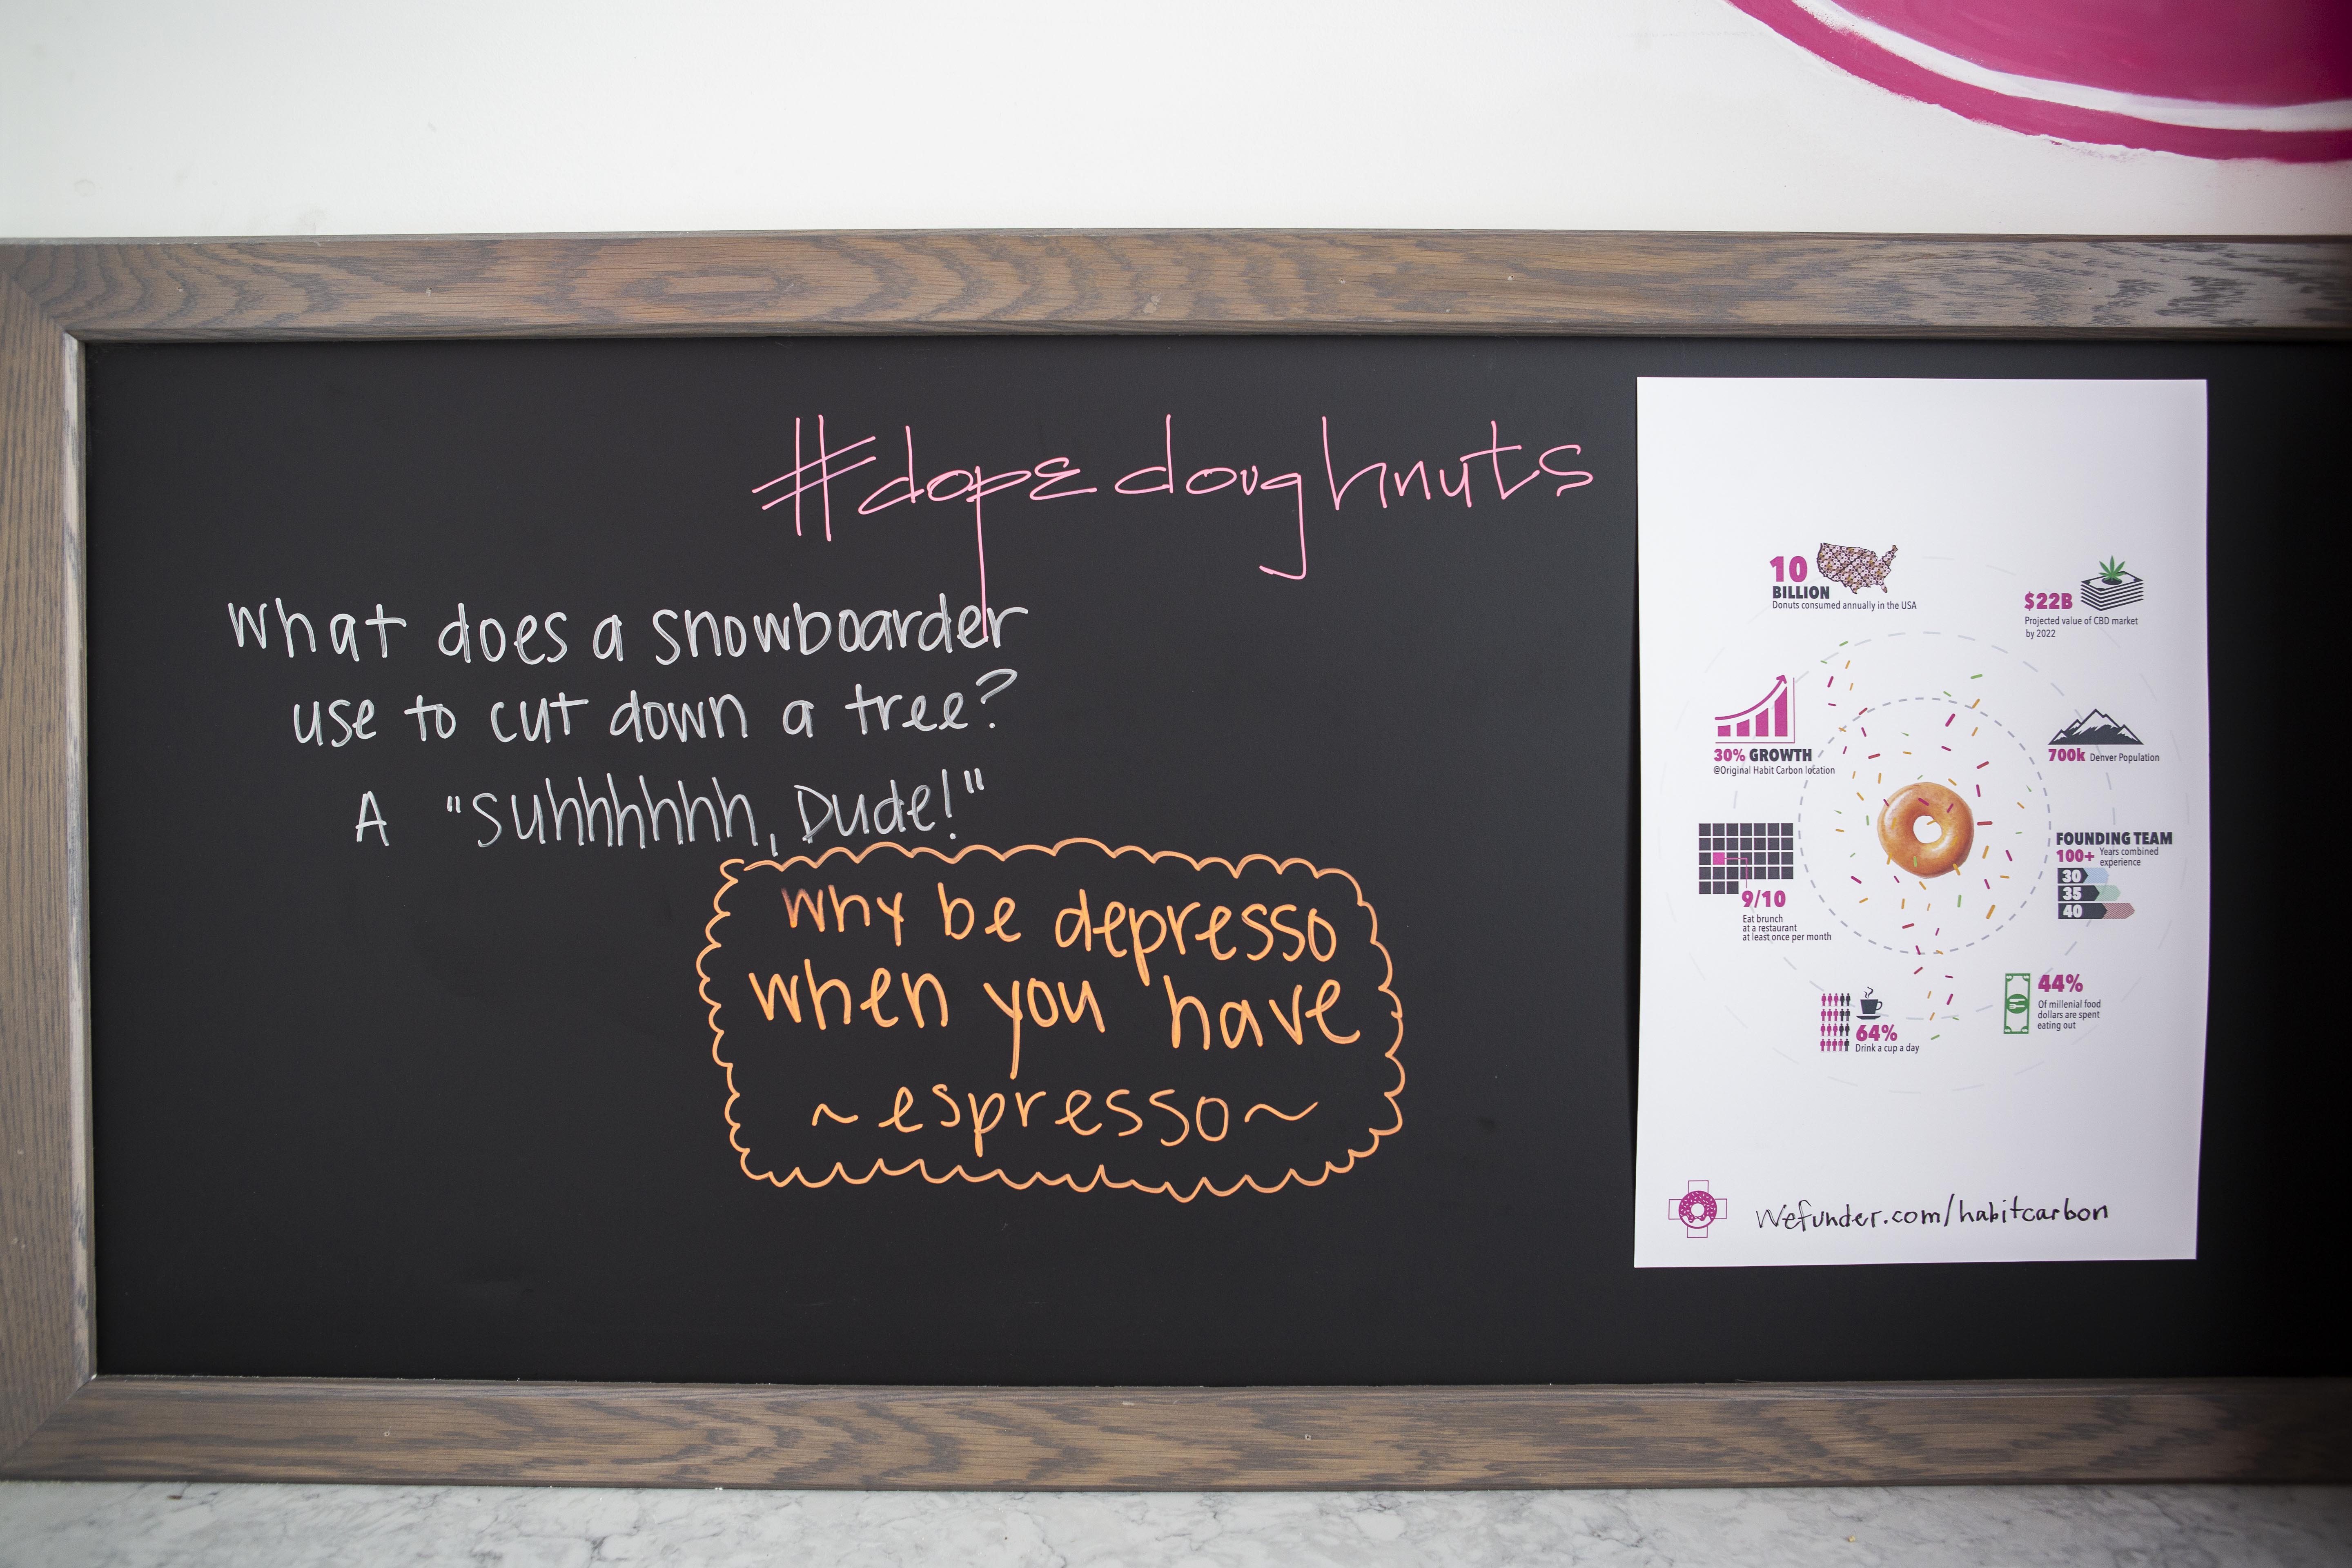 #dopedoughnuts
What does a snowboarder
use to cut down a tree?
A "Suhhhhhh, Dude!"
Why be depresso
when you have
~espresso~
10
BILLION
Donuts consumed annually in the USA
$22B
Projected value of CBD market
by 2022
30% GROWTH
@Original Habit Carbon location
700k Denver Population
9/10
Eat brunch
at a restaurant
at least once per month
FOUNDING TEAM
100+ Years combined
experience
30
35
40
64%
Drink a cup a day
44%
Of millenial food
dollars are spent
eating out
Wefunder.com/habitcarbon